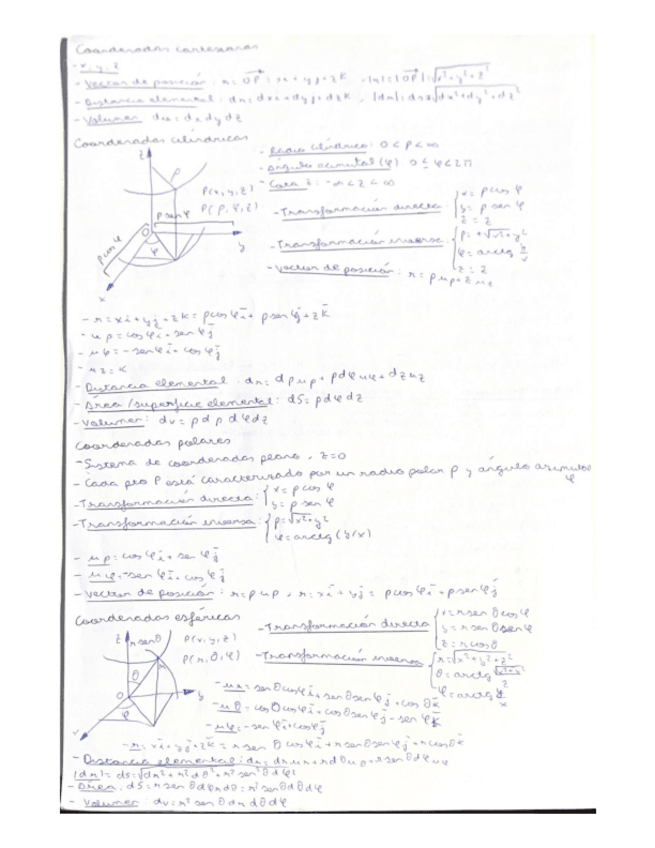 Coordenadas cartesianas
- x, y, z
- Vector de posición: r = OP = xi + yj + zk, |r| = |OP| = √x²+y²+z²
- Distancia elemental: dr = dxi + dyj + dzk, |dr| = ds = √dx²+dy²+dz²
- Volumen: dv = dx dy dz
Coordenadas cilíndricas
- Radio cilíndrico: 0 < ρ < ∞
- Ángulo acimutal (φ) 0 ≤ φ < 2π
- Cota z: -∞ < z < ∞
z
ρ
P(x, y, z)
P(ρ, φ, z)
ρ sen φ
O
ρ cos φ
φ
y
x
- Transformación directa: { x = ρ cos φ
y = ρ sen φ
z = z
- Transformación inversa: { ρ = +√x²+y²
φ = arctg y/x
z = z
- Vector de posición: r = ρ uρ + z uz
- r = xi + yj + zk = ρ cos φ i + ρ sen φ j + z k
- uρ = cos φ i + sen φ j
- uφ = -sen φ i + cos φ j
- uz = k
- Distancia elemental: dr = dρ uρ + ρdφ uφ + dz uz
- Área/superficie elemental: dS = ρdφ dz
- Volumen: dv = ρ dρ dφ dz
Coordenadas polares
- Sistema de coordenadas plano, z=0
- Cada pto P está caracterizado por un radio polar ρ y ángulo azimutal
φ
- Transformación directa: { x = ρ cos φ
y = ρ sen φ
- Transformación inversa: { ρ = √x²+y²
φ = arctg (y/x)
- uρ = cos φ i + sen φ j
- uφ = -sen φ i + cos φ j
- Vector de posición: r = ρ uρ, r = xi + yj = ρ cos φ i + ρ sen φ j
Coordenadas esféricas
z
r sen θ
P(x, y, z)
P(r, θ, φ)
θ
O
φ
y
- Transformación directa { x = r sen θ cos φ
y = r sen θ sen φ
z = r cos θ
- Transformación inversa { r = √x²+y²+z²
θ = arctg √x²+y²/z
φ = arctg y/x
- ur = sen θ cos φ i + sen θ sen φ j + cos θ k
- uθ = cos θ cos φ i + cos θ sen φ j - sen φ k
- uφ = -sen φ i + cos φ j
- r = xi + yj + zk = r sen θ cos φ i + r sen θ sen φ j + r cos θ k
- Distancia elemental: dr = dr ur + r dθ uρ + r sen θ dφ uφ
|dr| = ds = √dr² + r² dθ² + r² sen² θ dφ²
- Área: dS = r sen θ dφ r dθ = r² sen θ dθ dφ
- Volumen: dv = r² sen θ dr dθ dφ